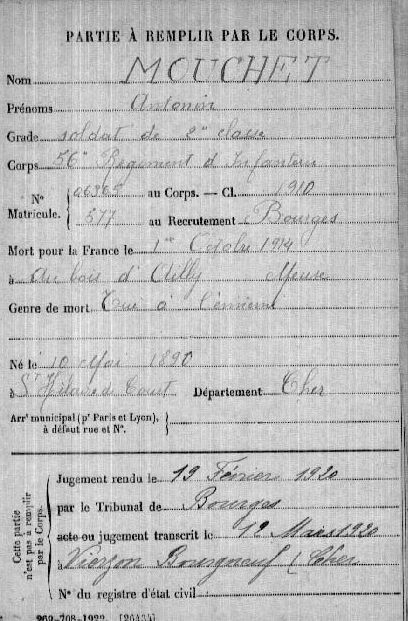 PARTIE À REMPLIR PAR LE CORPS.
Nom MOUCHET
Prénoms Antonin
Grade soldat de 2e classe
Corps 56e Régiment d'Infanterie
N° Matricule. { 06365 au Corps. — Cl. 1910
577 au Recrutement Bourges
Mort pour la France le 1er Octobre 1914
à au bois d'Ailly Meuse
Genre de mort Tué à l'ennemi
Né le 10 Mai 1890
à St Hilaire de Court Département Cher
Arrt municipal (pr Paris et Lyon), à défaut rue et N°. }
Cette partie n'est pas à remplir par le Corps.
Jugement rendu le 19 Février 1920
par le Tribunal de Bourges
acte ou jugement transcrit le 12 Mars 1920
à Vierzon Bourgneuf (Cher
N° du registre d'état civil
969-708-1922. [26434]